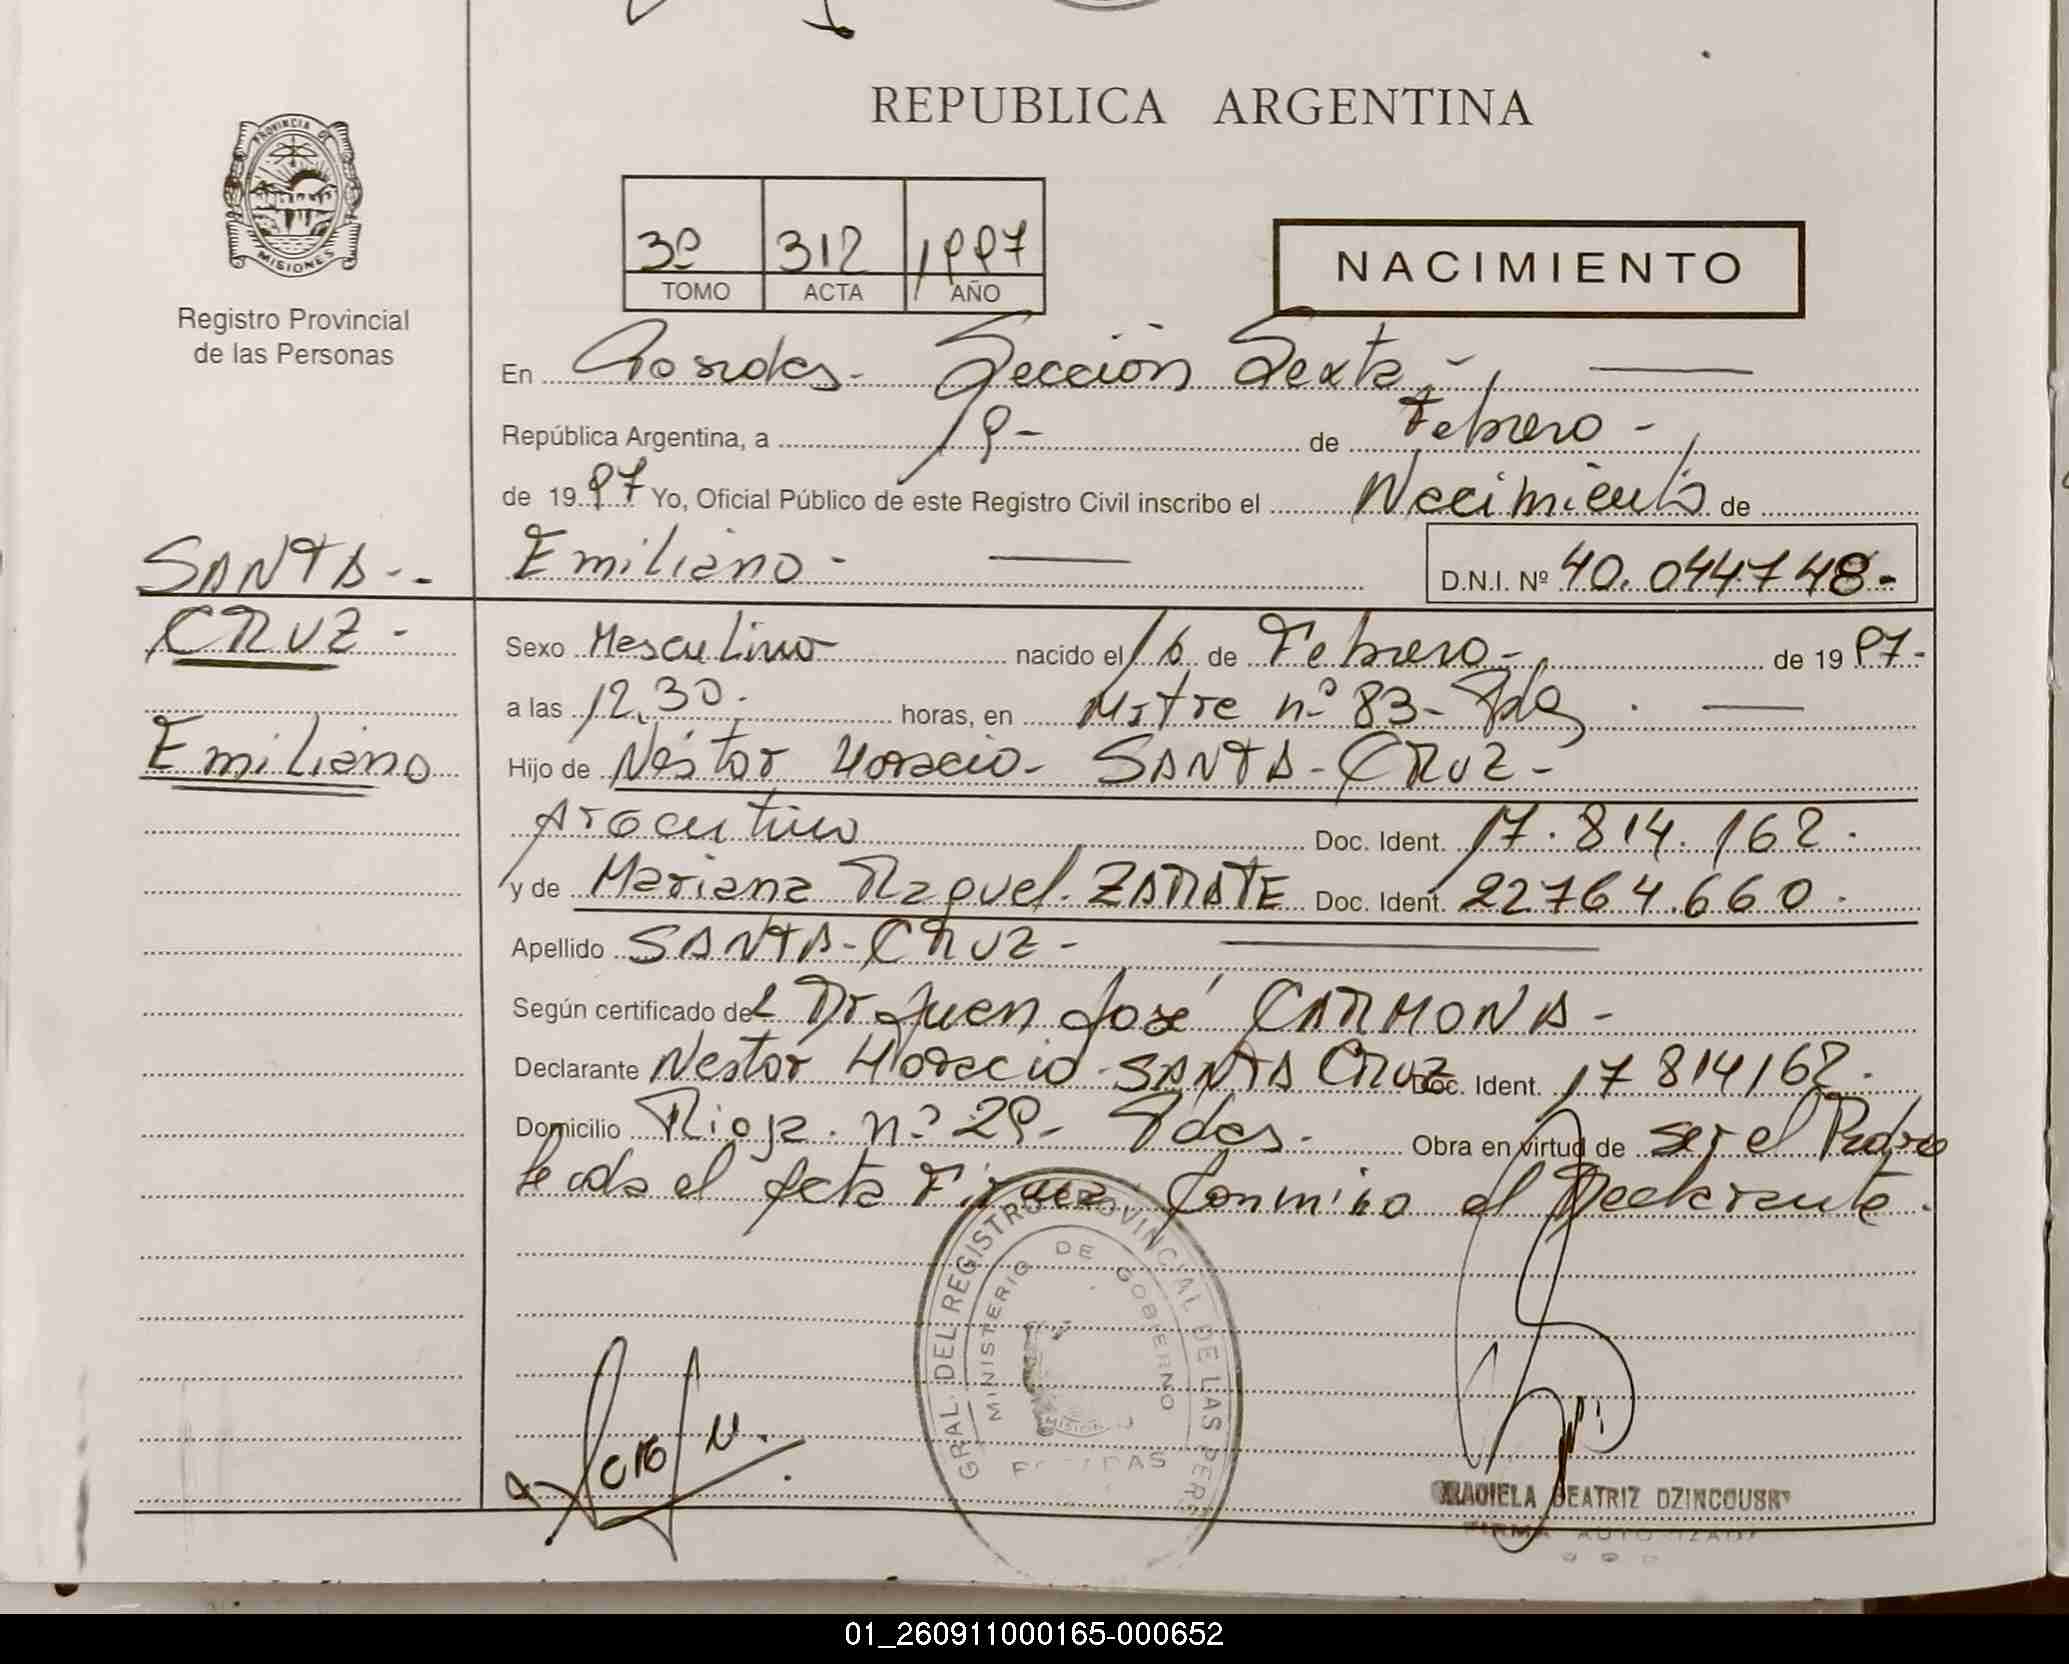 REPUBLICA ARGENTINA
PROVINCIA DE
MISIONES
Registro Provincial
de las Personas
3º 312 1997
TOMO ACTA AÑO
NACIMIENTO
En Posadas - Sección Sexta -
República Argentina, a 19 - de Febrero -
de 1997 Yo, Oficial Público de este Registro Civil inscribo el Nacimiento de
SANTA -
CRUZ -
Emiliano
Emiliano - D.N.I. Nº 40.044.748 -
Sexo Masculino nacido el 16 de Febrero - de 1997 -
a las 12.30 . horas, en Mitre nº 83 - Pdas
Hijo de Néstor Horacio - SANTA - CRUZ -
Argentino Doc. Ident. 17.814.162 .
y de Mariana Raquel. ZARATE Doc. Ident. 22764.660 .
Apellido SANTA - CRUZ -
Según certificado del Dr Juan José CARMONA -
Declarante Nestor Horacio SANTA CRUZ Doc. Ident. 17 814162 .
Domicilio Rioja . nº 29 - Pdas . Obra en virtud de ser el Padre
Leida el Acta Firma Conmigo el Declarante .
GRAL. DEL REGISTRO PROVINCIAL DE LAS PERS
MINISTERIO DE GOBIERNO
MISION
BEATRIZ DZINCOUSKY
FIRMA AUTORIZADA
01_260911000165-000652